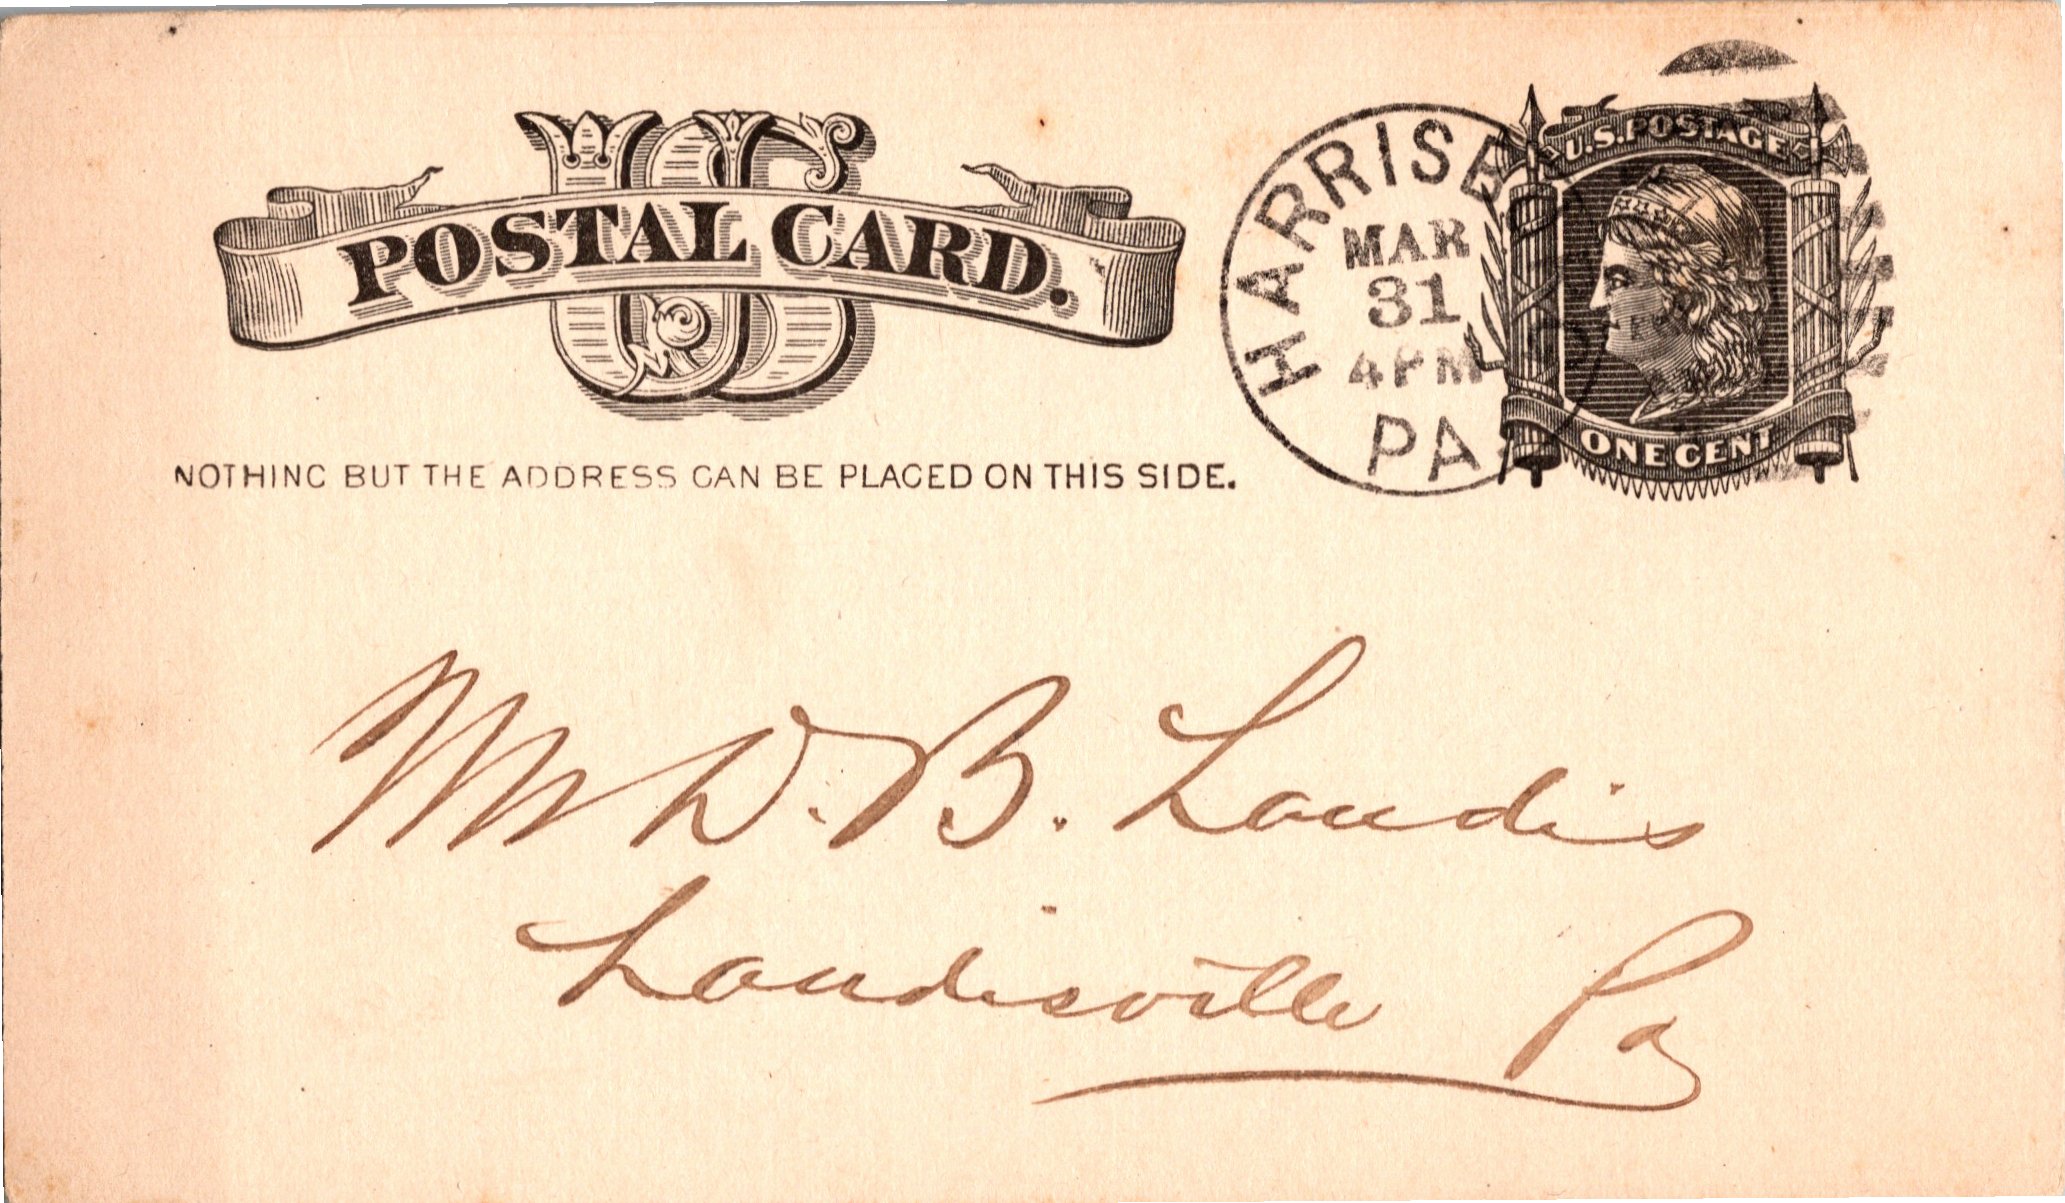 US
POSTAL CARD.
U.S. POSTAGE
ONE CENT
HARRISB
MAR
31
4 PM
PA
NOTHING BUT THE ADDRESS CAN BE PLACED ON THIS SIDE.
Mr D. B. Landis
Landisville Pa